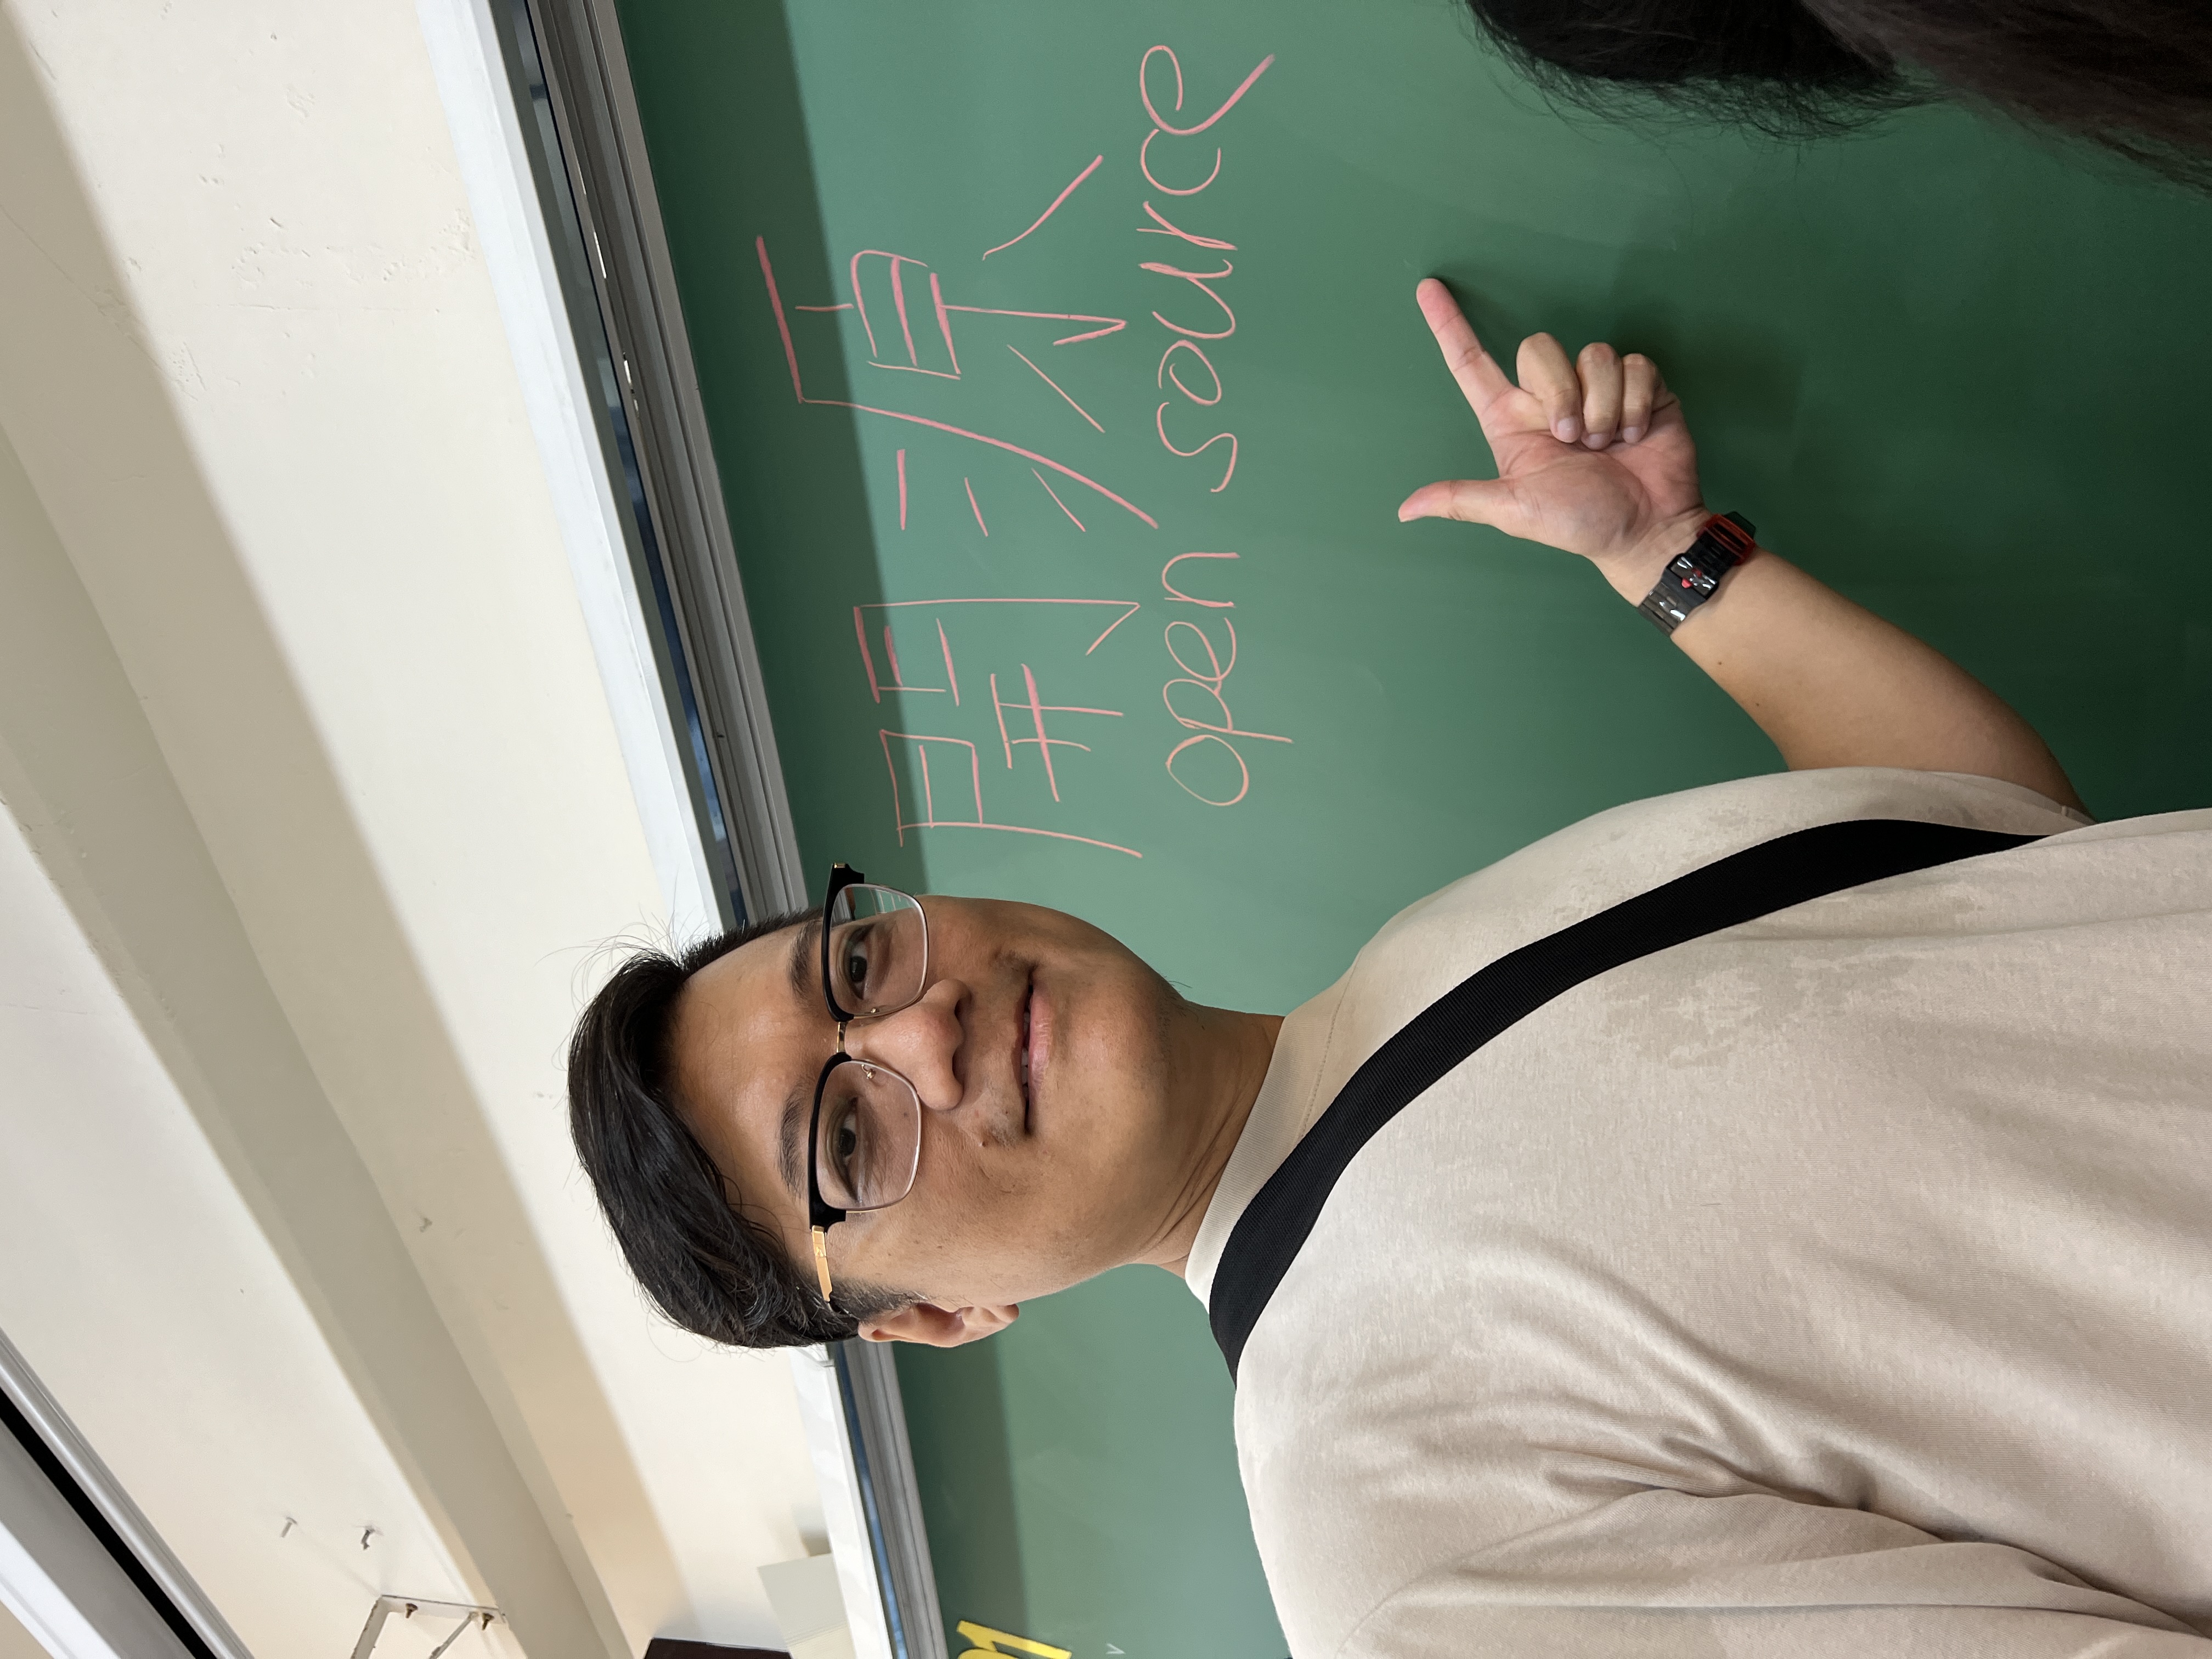 開源
open source